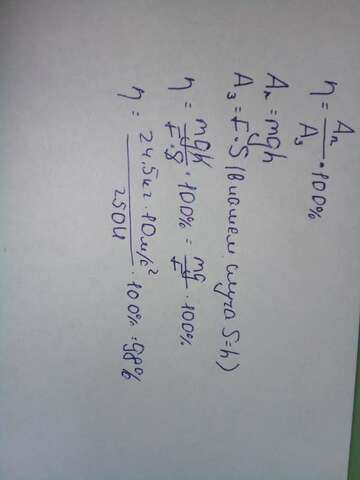 η = Aп/Aз · 100%
Aп = mgh
Aз = F·S (в нашем случа S=h)
η = mgh/F·S · 100% = mg/F · 100%
η = 24,5кг · 10м/с²/250Н · 100% = 98%